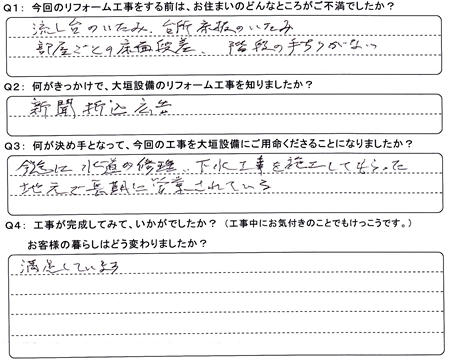 Q1: 今回のリフォーム工事をする前は、お住まいのどんなところがご不満でしたか？
流し台のいたみ、台所床板のいたみ
部屋ごとの床面段差、階段の手すりがない
Q2: 何がきっかけで、大垣設備のリフォーム工事を知りましたか？
新聞折込広告
Q3: 何が決め手となって、今回の工事を大垣設備にご用命くださることになりましたか？
水道の修理、下水工事を施工してもらった
地元で長期に営業されている
Q4: 工事が完成してみて、いかがでしたか？（工事中にお気付きのことでもけっこうです。）
お客様の暮らしはどう変わりましたか？
満足しています